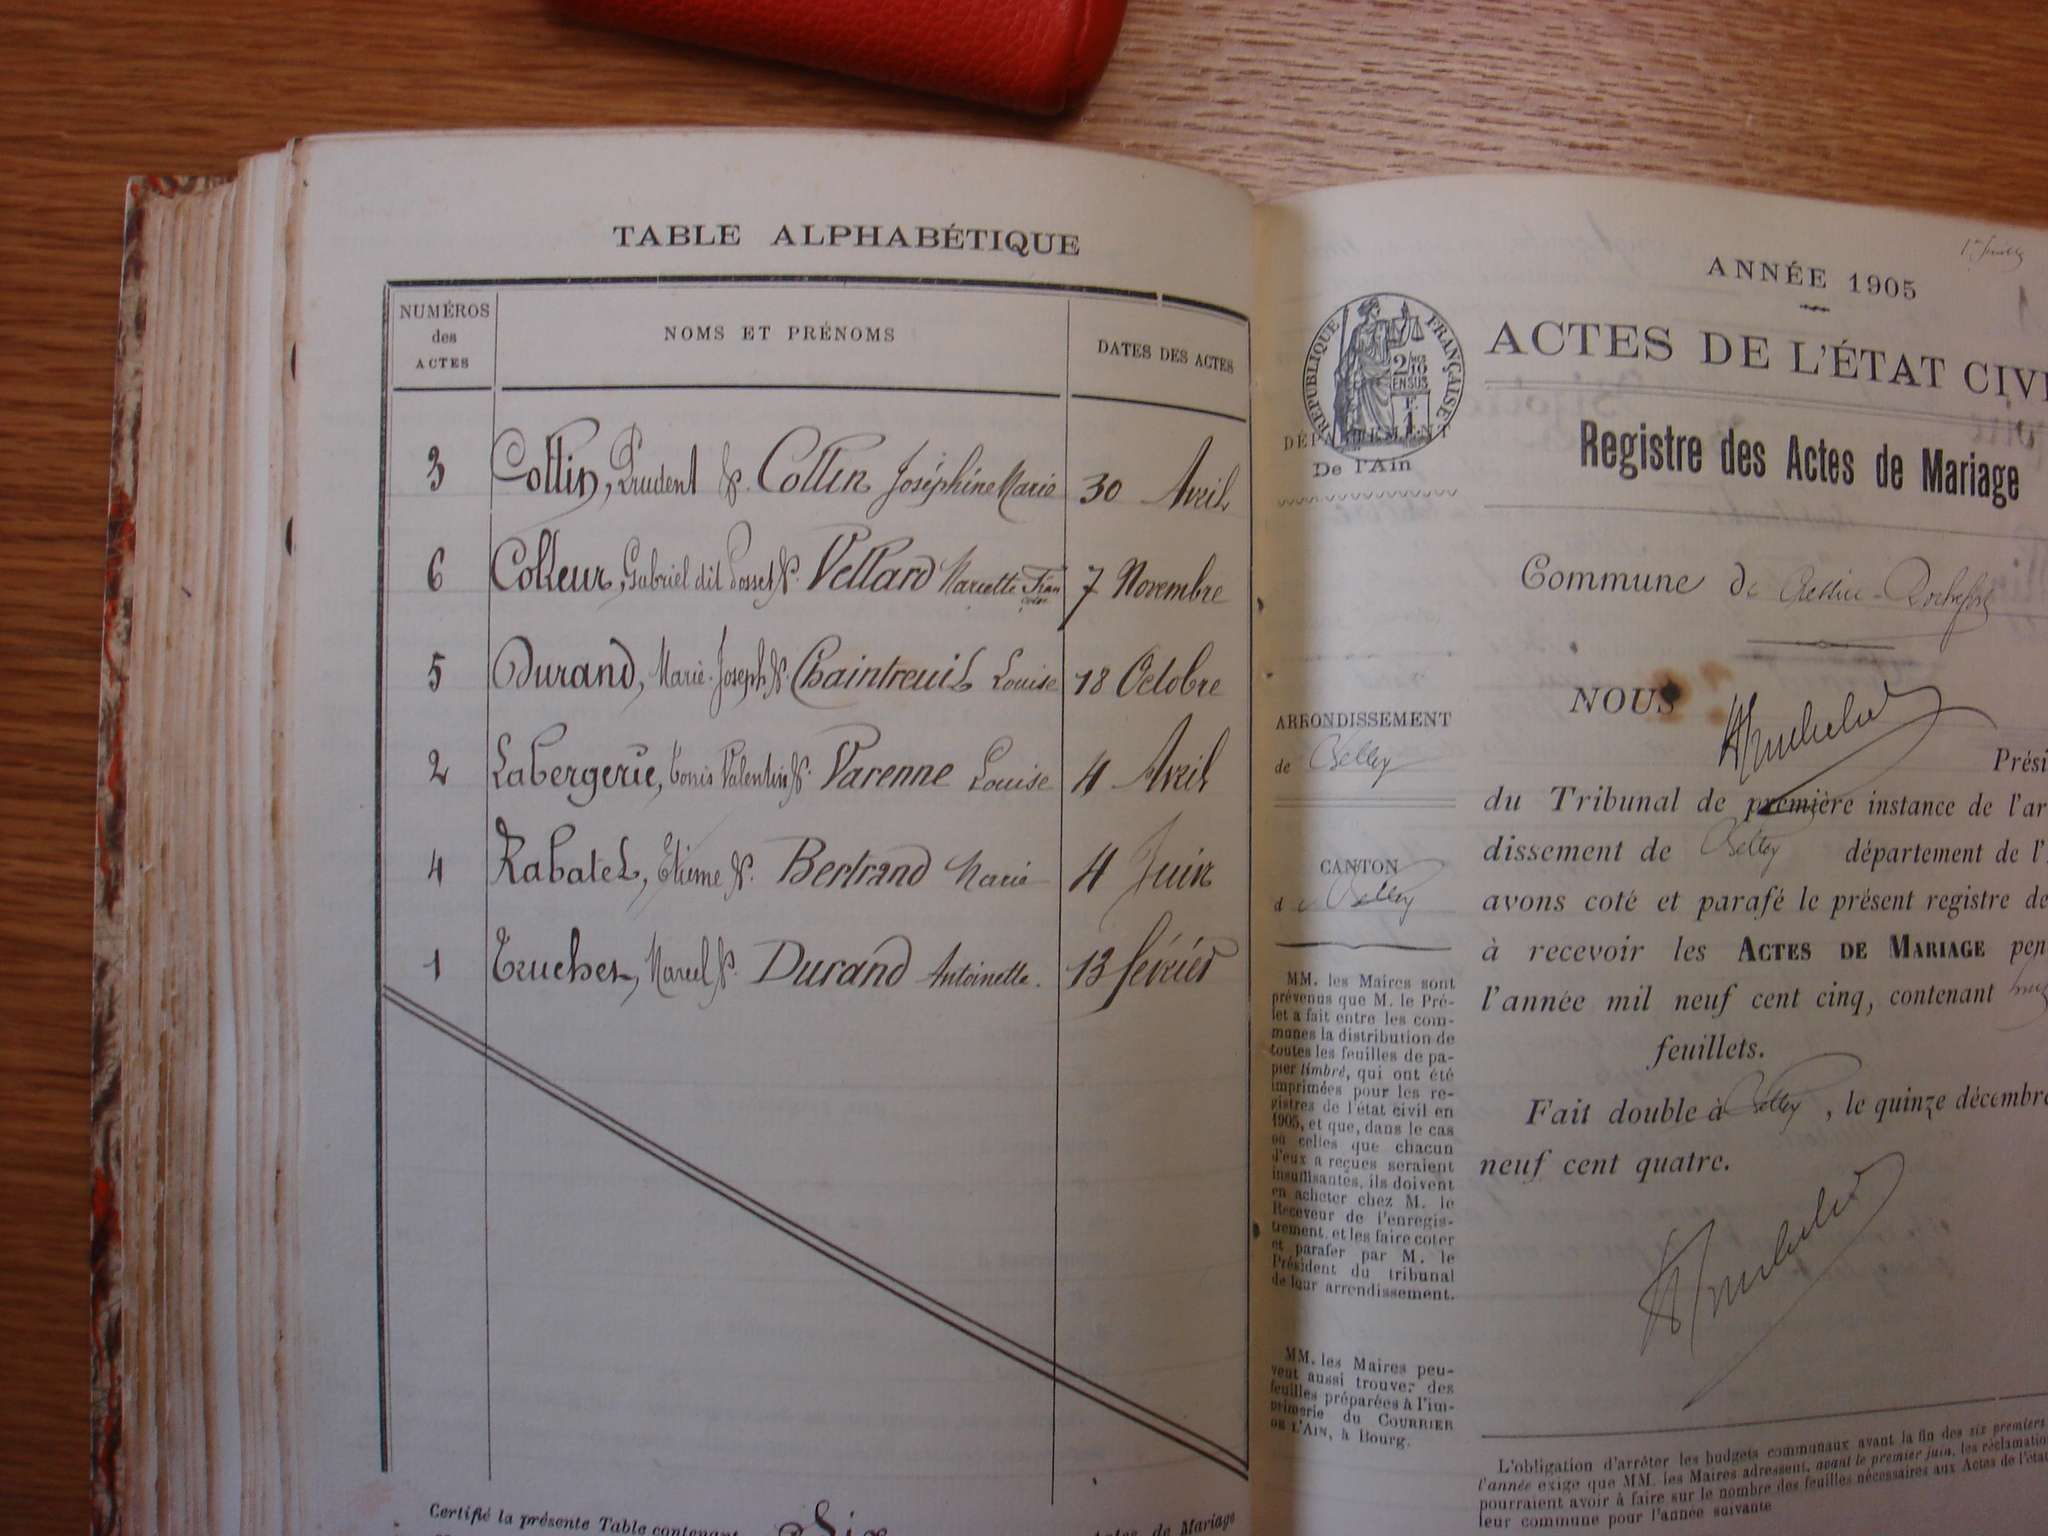 TABLE ALPHABÉTIQUE
NUMÉROS des ACTES
NOMS ET PRÉNOMS
DATES DES ACTES
3 Collin, Prudent &. Collin Joséphine Marie 30 Avril
6 Colleur, Gabriel dit Posset &. Vellard Mariette 7 Novembre
5 Durand, Marie-Joseph &. Chaintreuil Louise 18 Octobre
2 Labergerie, Valentin &. Varenne Louise 4 Avril
4 Rabatel, Etienne &. Bertrand Marie 4 Juin
1 Truchet, Marcel &. Durand Antoinette. 13 février
Certifié la présente Table contenant Six actes de Mariage
ANNÉE 1905
ACTES DE L'ÉTAT CIVI
Registre des Actes de Mariage
RÉPUBLIQUE FRANÇAISE
2/10 EN SUS
F. 1
DÉPARTEMENT
De l'Ain
Commune de Rochefort
NOUS
ARRONDISSEMENT
de Belley
Prési
du Tribunal de première instance de l'ar
dissement de Belley département de l'
CANTON
de Belley
avons coté et parafé le présent registre de
à recevoir les ACTES DE MARIAGE pen
l'année mil neuf cent cinq, contenant
feuillets.
Fait double à Belley, le quinze décembre
neuf cent quatre.
MM. les Maires sont
prévenus que M. le Pré-
fet a fait entre les com-
munes la distribution de
toutes les feuilles de pa-
pier timbré, qui ont été
imprimées pour les re-
gistres de l'état civil en
1905, et que, dans le cas
où celles que chacun
d'eux a reçues seraient
insuffisantes, ils doivent
en acheter chez M. le
Receveur de l'enregis-
trement, et les faire coter
et parafer par M. le
Président du tribunal
de leur arrondissement.
MM. les Maires peu-
vent aussi trouver des
feuilles préparées à l'im-
primerie du COURRIER
DE L'AIN, à Bourg.
L'obligation d'arrêter les budgets communaux avant la fin des six premiers
l'année exige que MM. les Maires adressent, avant le premier juin, les réclamation
pourraient avoir à faire sur le nombre des feuilles nécessaires aux Actes de l'état
leur commune pour l'année suivante